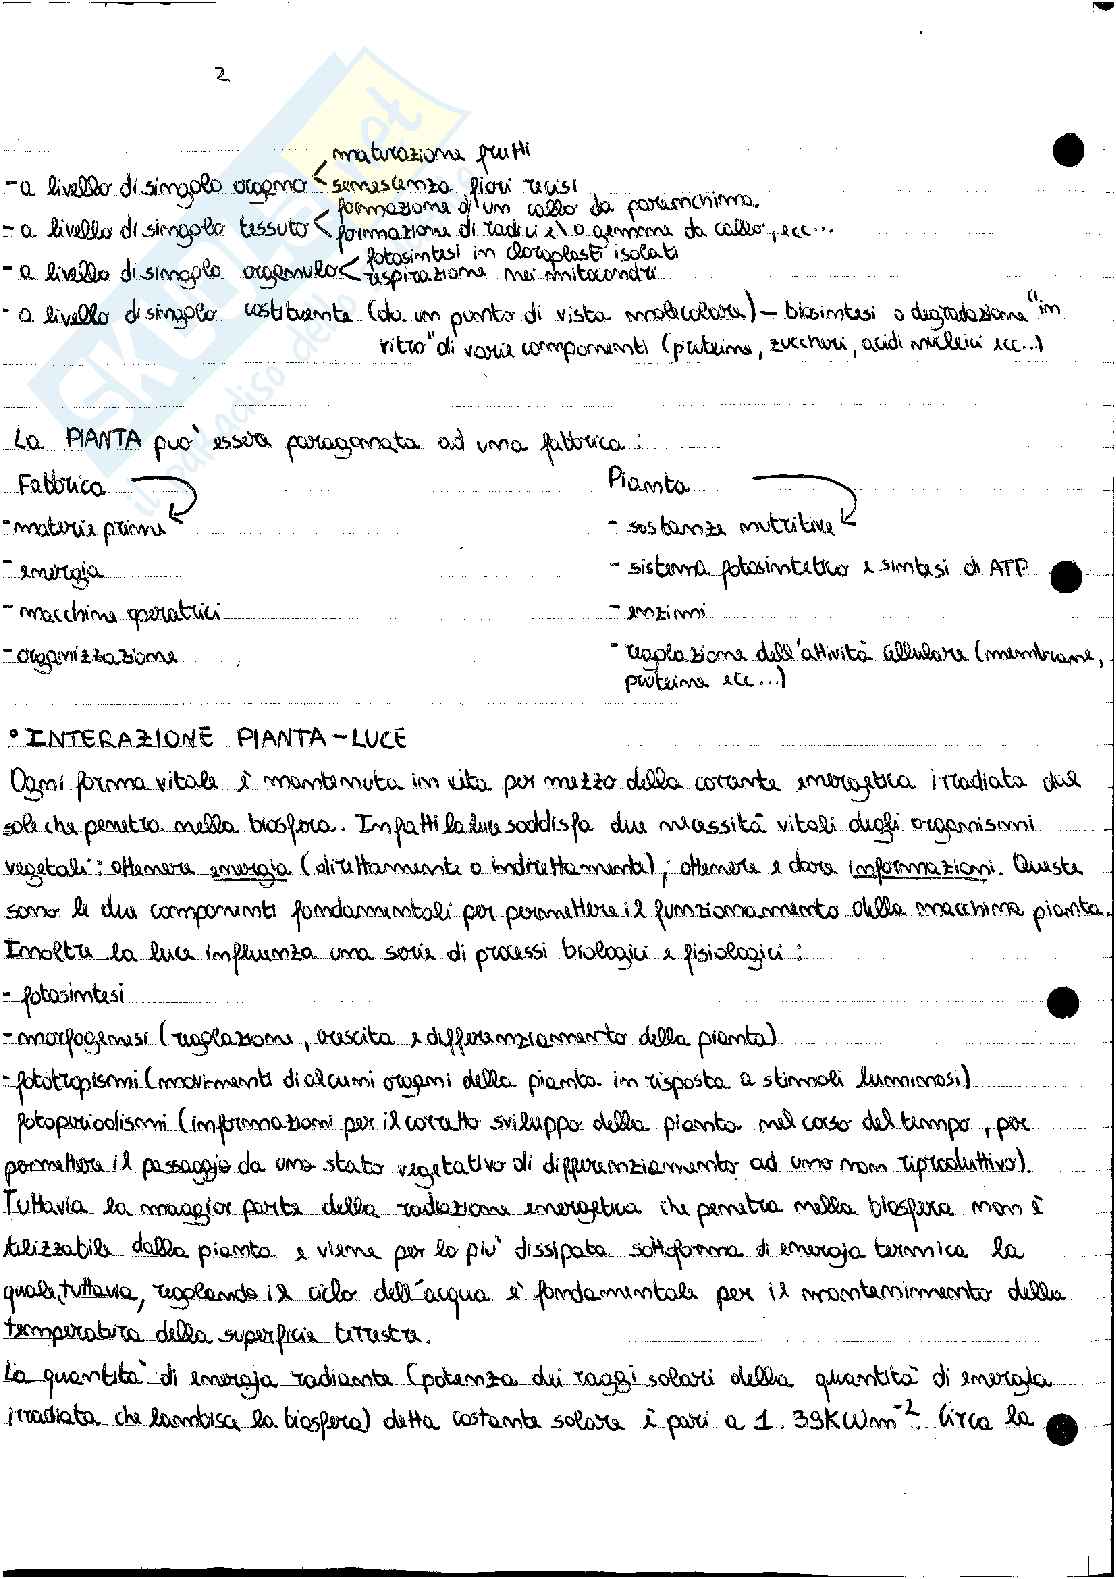 2
maturazione frutti
- a livello di singolo organo < senescenza fiori recisi
formazione di un callo da parenchima.
- a livello di singolo tessuto < formazione di radici e\o gemme da callo, ecc...
fotosintesi in cloroplasti isolati
- a livello di singolo organulo < respirazione nei mitocondri
- a livello di singolo costituente (da un punto di vista molecolare) - biosintesi o degradazione "in
vitro" di varie componenti (proteine, zuccheri, acidi nucleici ecc...)
La PIANTA puo' essere paragonata ad una fabbrica:
Fabbrica Pianta
- materie prime - sostanze nutritive
- energia - sistema fotosintetico e sintesi di ATP
- macchine operatrici - enzimi
- organizzazione - regolazione dell'attività cellulare (membrane,
proteine ecc...)
° INTERAZIONE PIANTA - LUCE
Ogni forma vitale è mantenuta in vita per mezzo della corrente energetica irradiata dal
sole che penetra nella biosfera. Infatti la luce soddisfa due necessità vitali degli organismi
vegetali: ottenere energia (direttamente o indirettamente); ottenere e dare informazioni. Queste
sono le due componenti fondamentali per permettere il funzionamento della macchina pianta.
Inoltre la luce influenza una serie di processi biologici e fisiologici:
- fotosintesi
- morfogenesi (regolazione, crescita e differenziamento della pianta)
- fototropismi (movimenti di alcuni organi della pianta in risposta a stimoli luminosi)
fotoperiodismi (informazioni per il corretto sviluppo della pianta nel corso del tempo, per
permettere il passaggio da uno stato vegetativo di differenziamento ad uno non riproduttivo).
Tuttavia la maggior parte della radiazione energetica che penetra nella biosfera non è
utilizzabile dalla pianta e viene per lo piu' dissipata sottoforma di energia termica la
quale, tuttavia, regolando il ciclo dell'acqua e' fondamentale per il mantenimento della
temperatura della superficie terrestre.
La quantità di energia radiante (potenza dei raggi solari della quantità di energia
irradiata che lambisce la biosfera) detta costante solare è pari a 1.39KWm⁻². Circa la